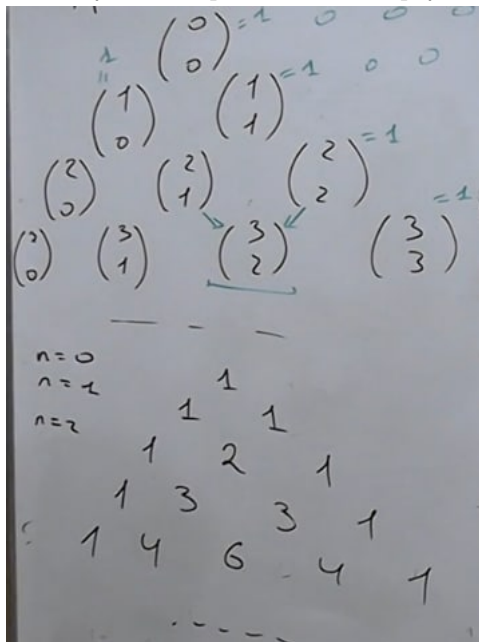 (0 0) = 1 0 0 0
1
=
(1 0) (1 1) = 1 0 0
(2 0) (2 1) (2 2) = 1
(3 0) (3 1) (3 2) (3 3) = 1
n=0
n=1
1
1 1
n=2
1 2 1
1 3 3 1
1 4 6 4 1